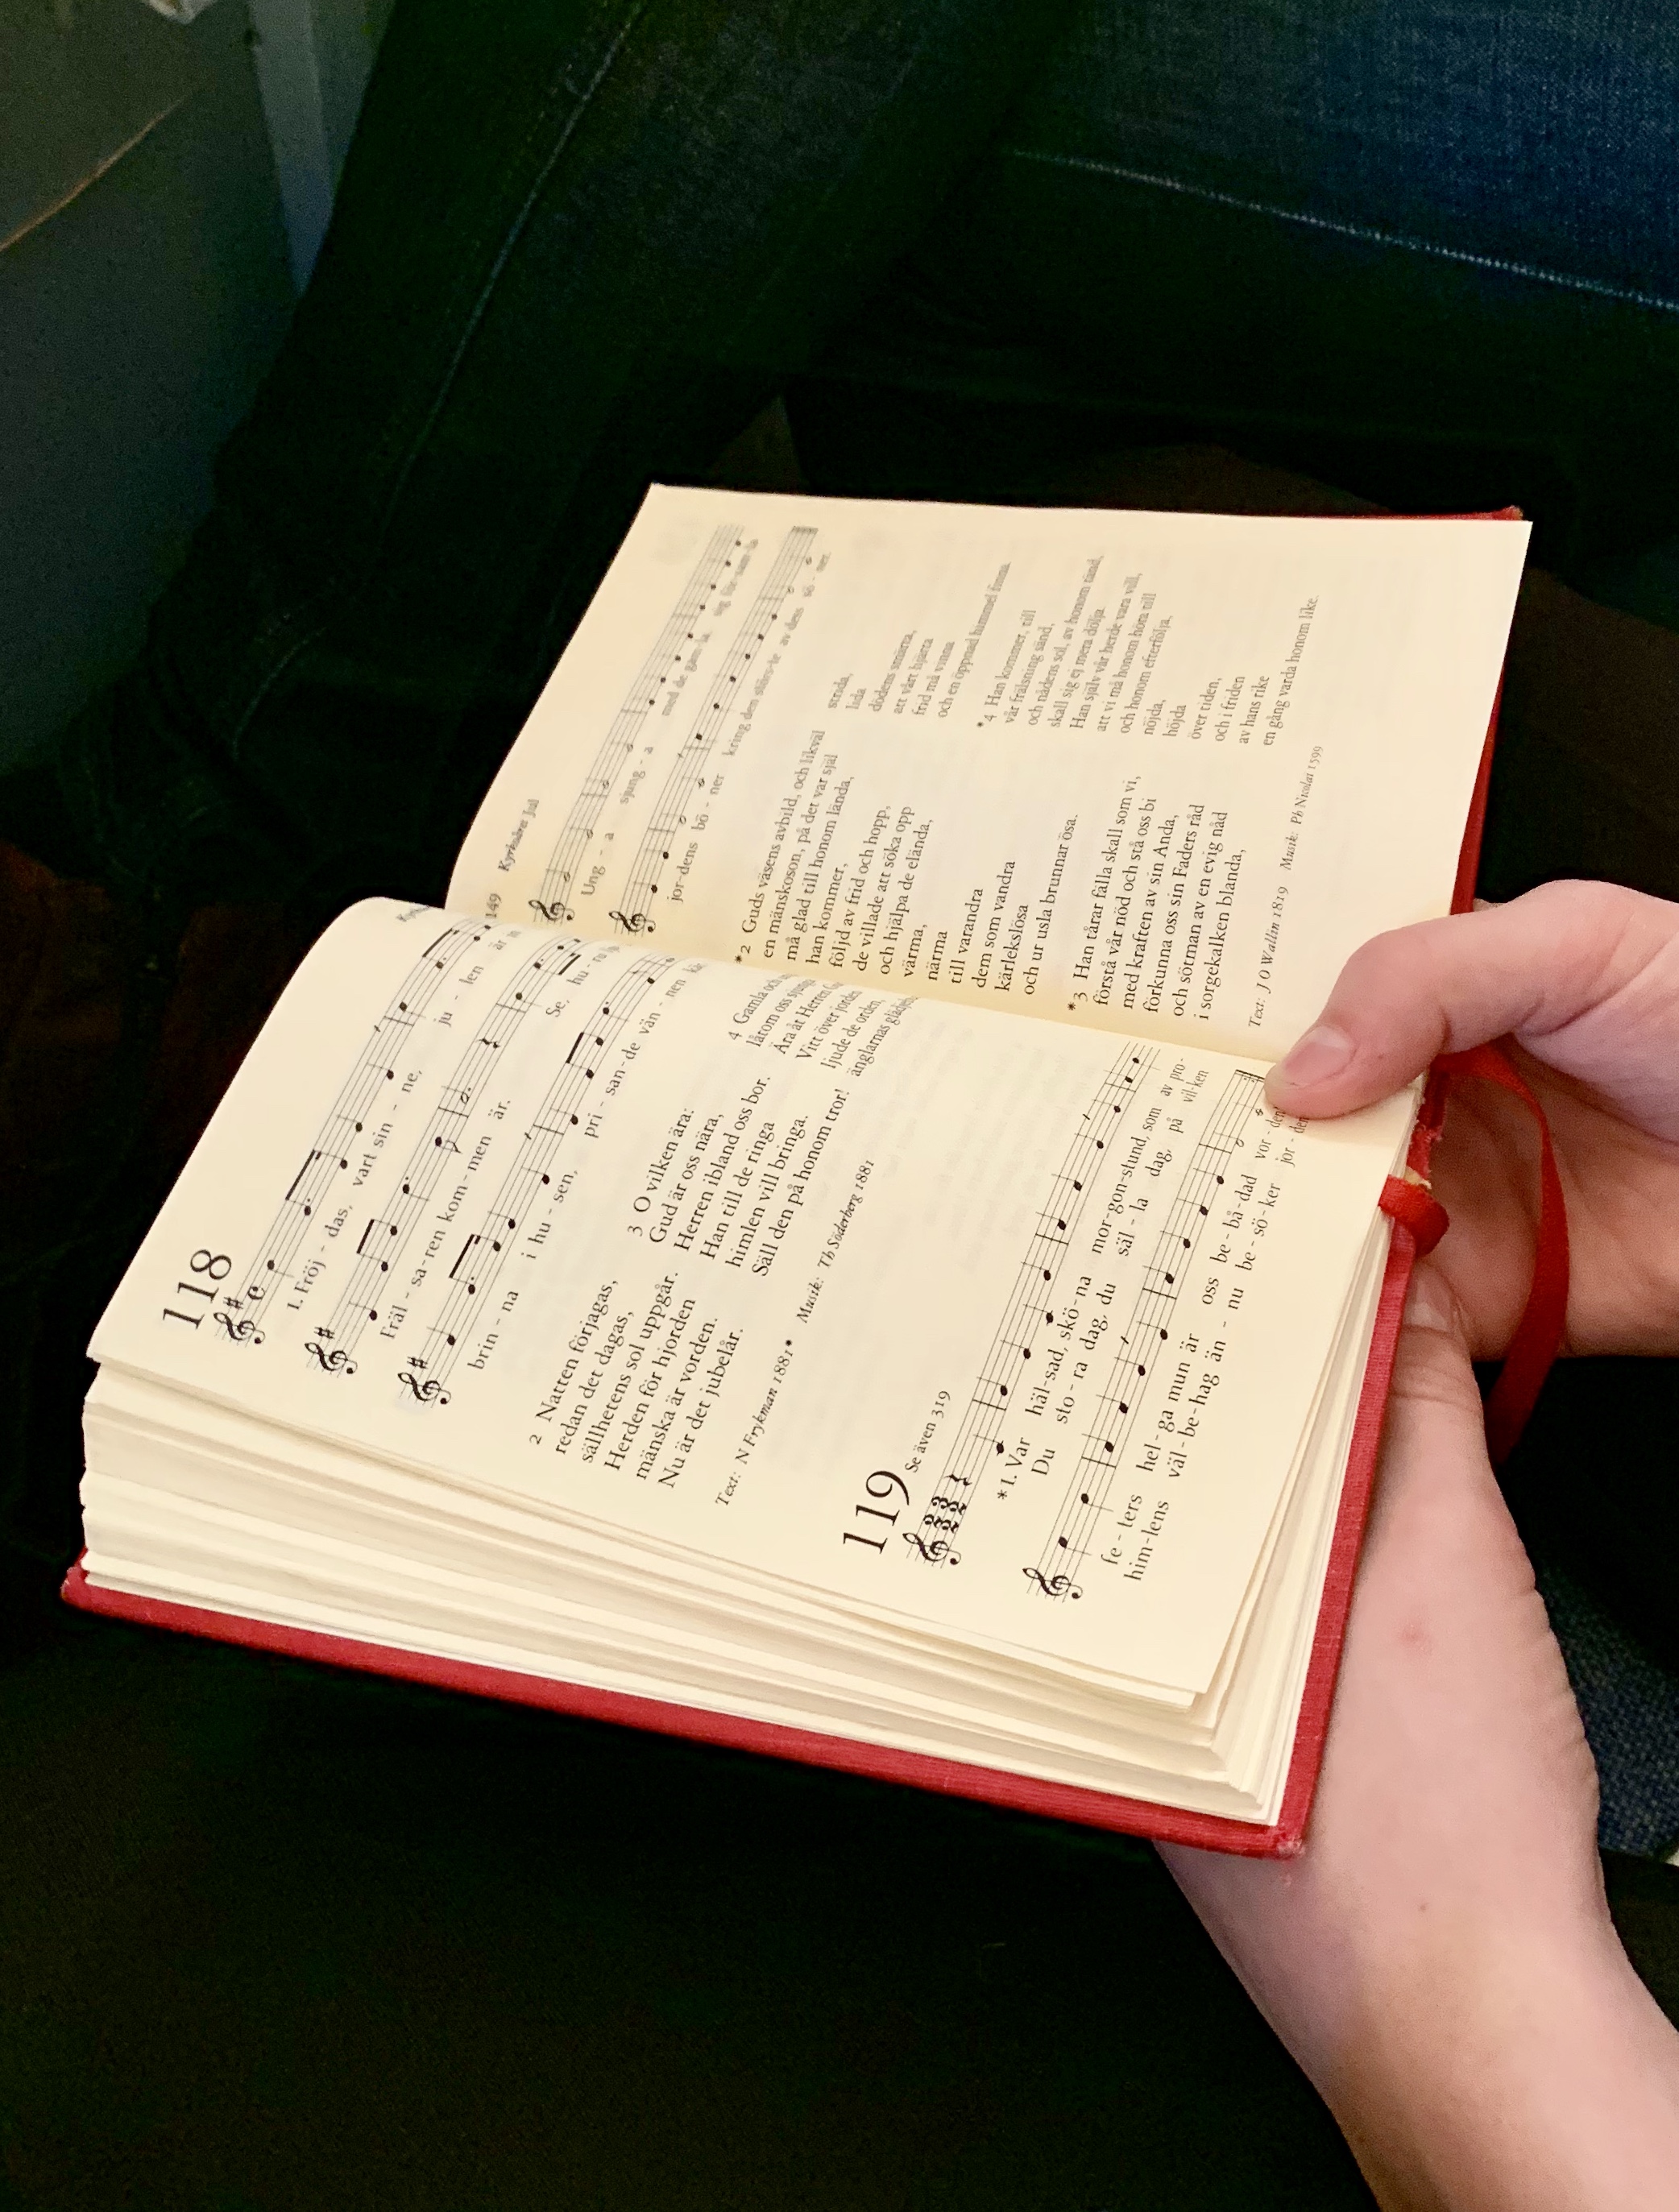 118
1. Fröj - das, vart sin - ne, ju - len är
Fräl - sa - ren kom - men är. Se, hu - ru
brin - na i hu - sen, pri - san - de vän - nen
2 Natten förjagas,
redan det dagas,
sällhetens sol uppgår.
Herden för hjorden
mänska är vorden.
Nu är det jubelår.
3 O vilken ära:
Gud är oss nära,
Herren ibland oss bor.
Han till de ringa
himlen vill bringa.
Säll den på honom tror!
4 Gamla och
låtom oss sjunga
Ära åt Herren
Vitt över jorden
ljude de orden,
änglarnas
Text: N Frykman 1881* Musik: Th Söderberg 1881
119 Se även 319
*1. Var häl-sad, skö-na mor-gon-stund, som av pro-
Du sto-ra dag, du säl - la dag, på vil-ken
fe - ters hel - ga mun är oss be - bå-dad vor -
him-lens väl - be - hag än - nu be - sö - ker jor -
149 Kyrkoåret Jul
Ung - a sjung - a med de gam - la
jor-dens bö - ner kring den
*2 Guds väsens avbild, och likväl
en mänskoson, på det var själ
må glad till honom lända,
han kommer,
följd av frid och hopp,
de villade att söka opp
och hjälpa de elända,
värma,
närma
till varandra
dem som vandra
kärlekslösa
och ur usla brunnar ösa.
*3 Han tårar fälla skall som vi,
förstå vår nöd och stå oss bi
med kraften av sin Anda,
förkunna oss sin Faders råd
och sötman av en evig nåd
i sorgekalken blanda,
strida,
lida
dödens smärta,
att vårt hjärta
frid må vinna
och en öppnad himmel finna.
*4 Han kommer, till
vår frälsning sänd,
och nådens sol, av honom tänd,
skall sig ej mera dölja.
Han själv vår herde vara vill,
att vi må honom höra till
och honom efterfölja,
nöjda,
höjda
över tiden,
och i friden
av hans rike
en gång varda honom like.
Text: J O Wallin 1819 Musik: Ph Nicolai 1599